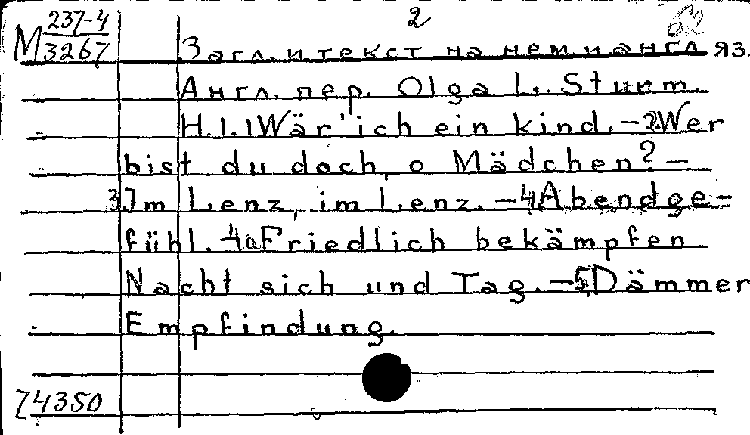 2
М 237-4
3267
Загл. и текст на нем. и англ яз.
Англ. пер. Olga L. Sturm.
H.1. 1Wär' ich ein kind. -2Wer
bist du doch, o Mädchen? -
3Im Lenz, im Lenz. -4Abendge-
fühl. 4aFriedlich bekämpfen
Nacht sich und Tag. -5Dämmer
Empfindung.
74350